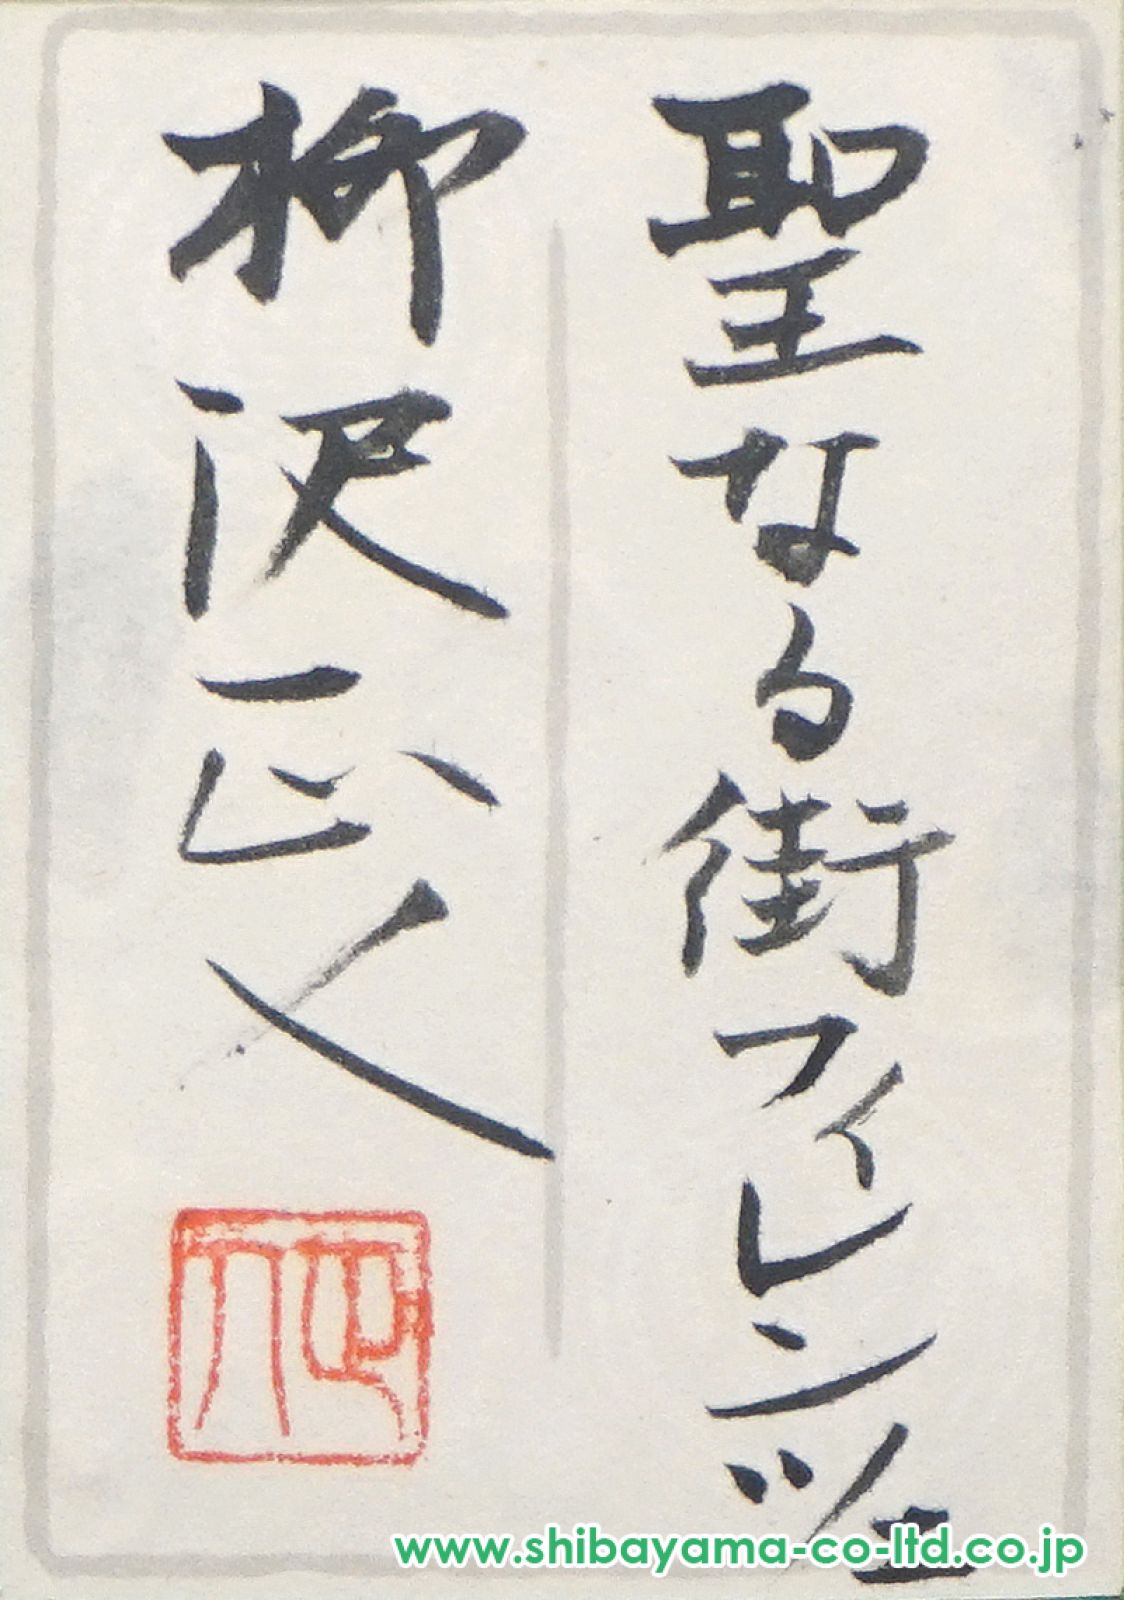 聖なる街フィレンツェ
柳沢正人
www.shibayama-co-ltd.co.jp